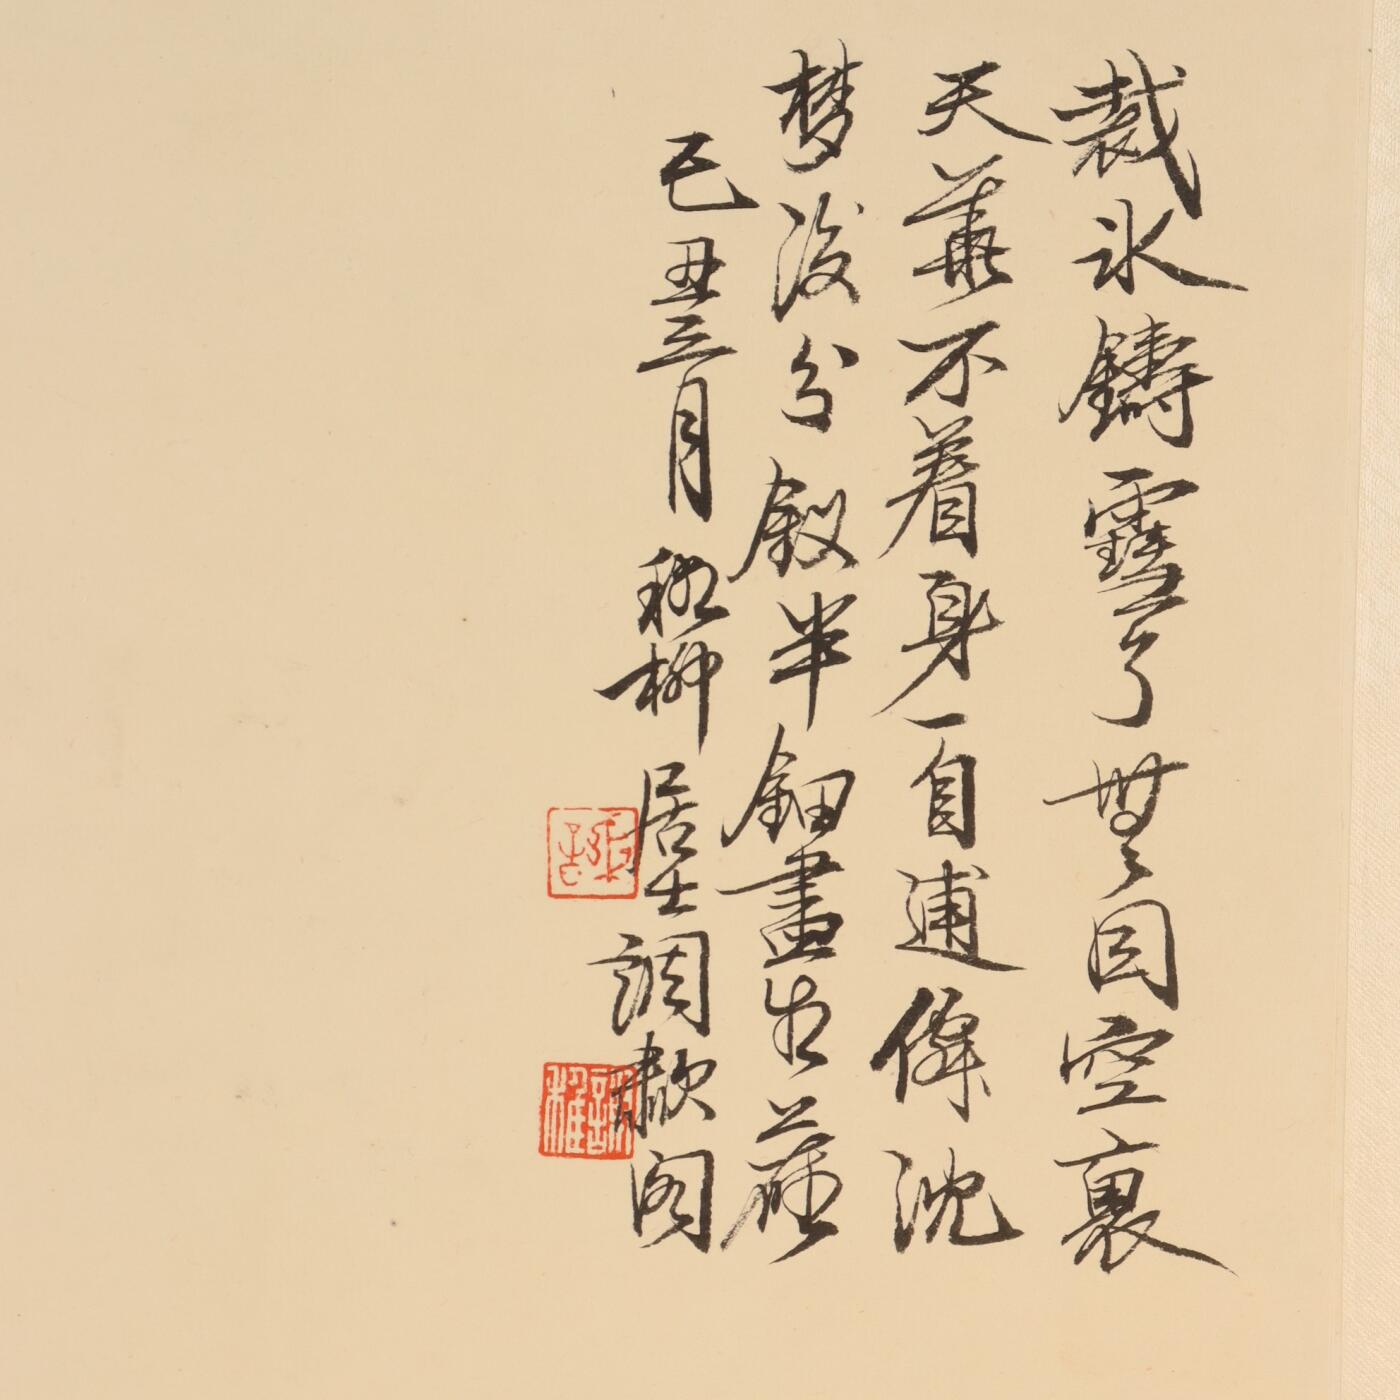 裁冰鑄雪了無因空裏
天葩不着身一自逋僊沈
夢後分釵半鈿畫古
己丑三月稚柳居士調歗閣